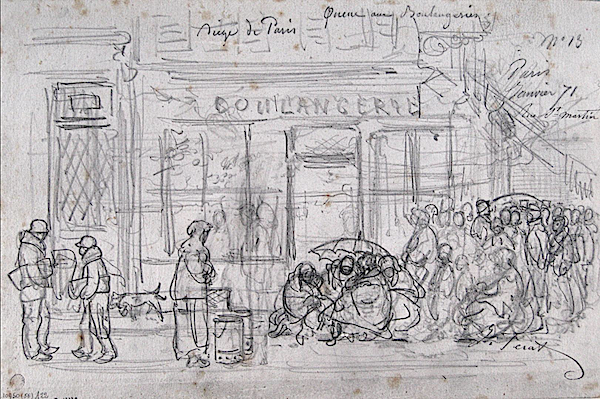 Siège de Paris
Queue aux Boulangeries
N° 13
Paris
Janvier 71
St Martin
BOULANGERIE